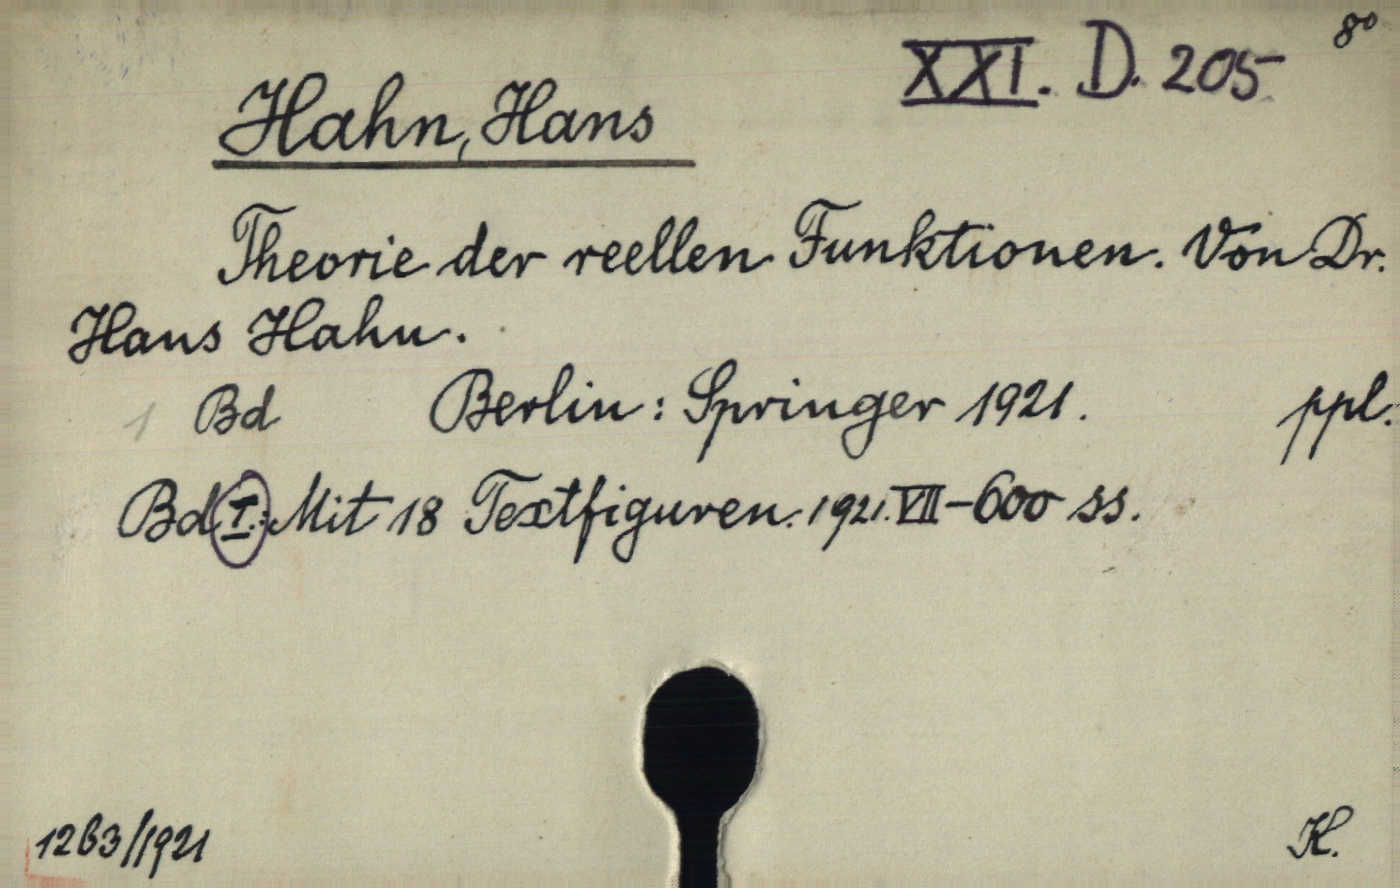 XXI. D. 205 8°
Hahn, Hans
Theorie der reellen Funktionen. Von Dr.
Hans Hahn.
1 Bd Berlin: Springer 1921. ppl.
Bd I.: Mit 18 Textfiguren. 1921. VII-600 ss.
1263/1921 K.